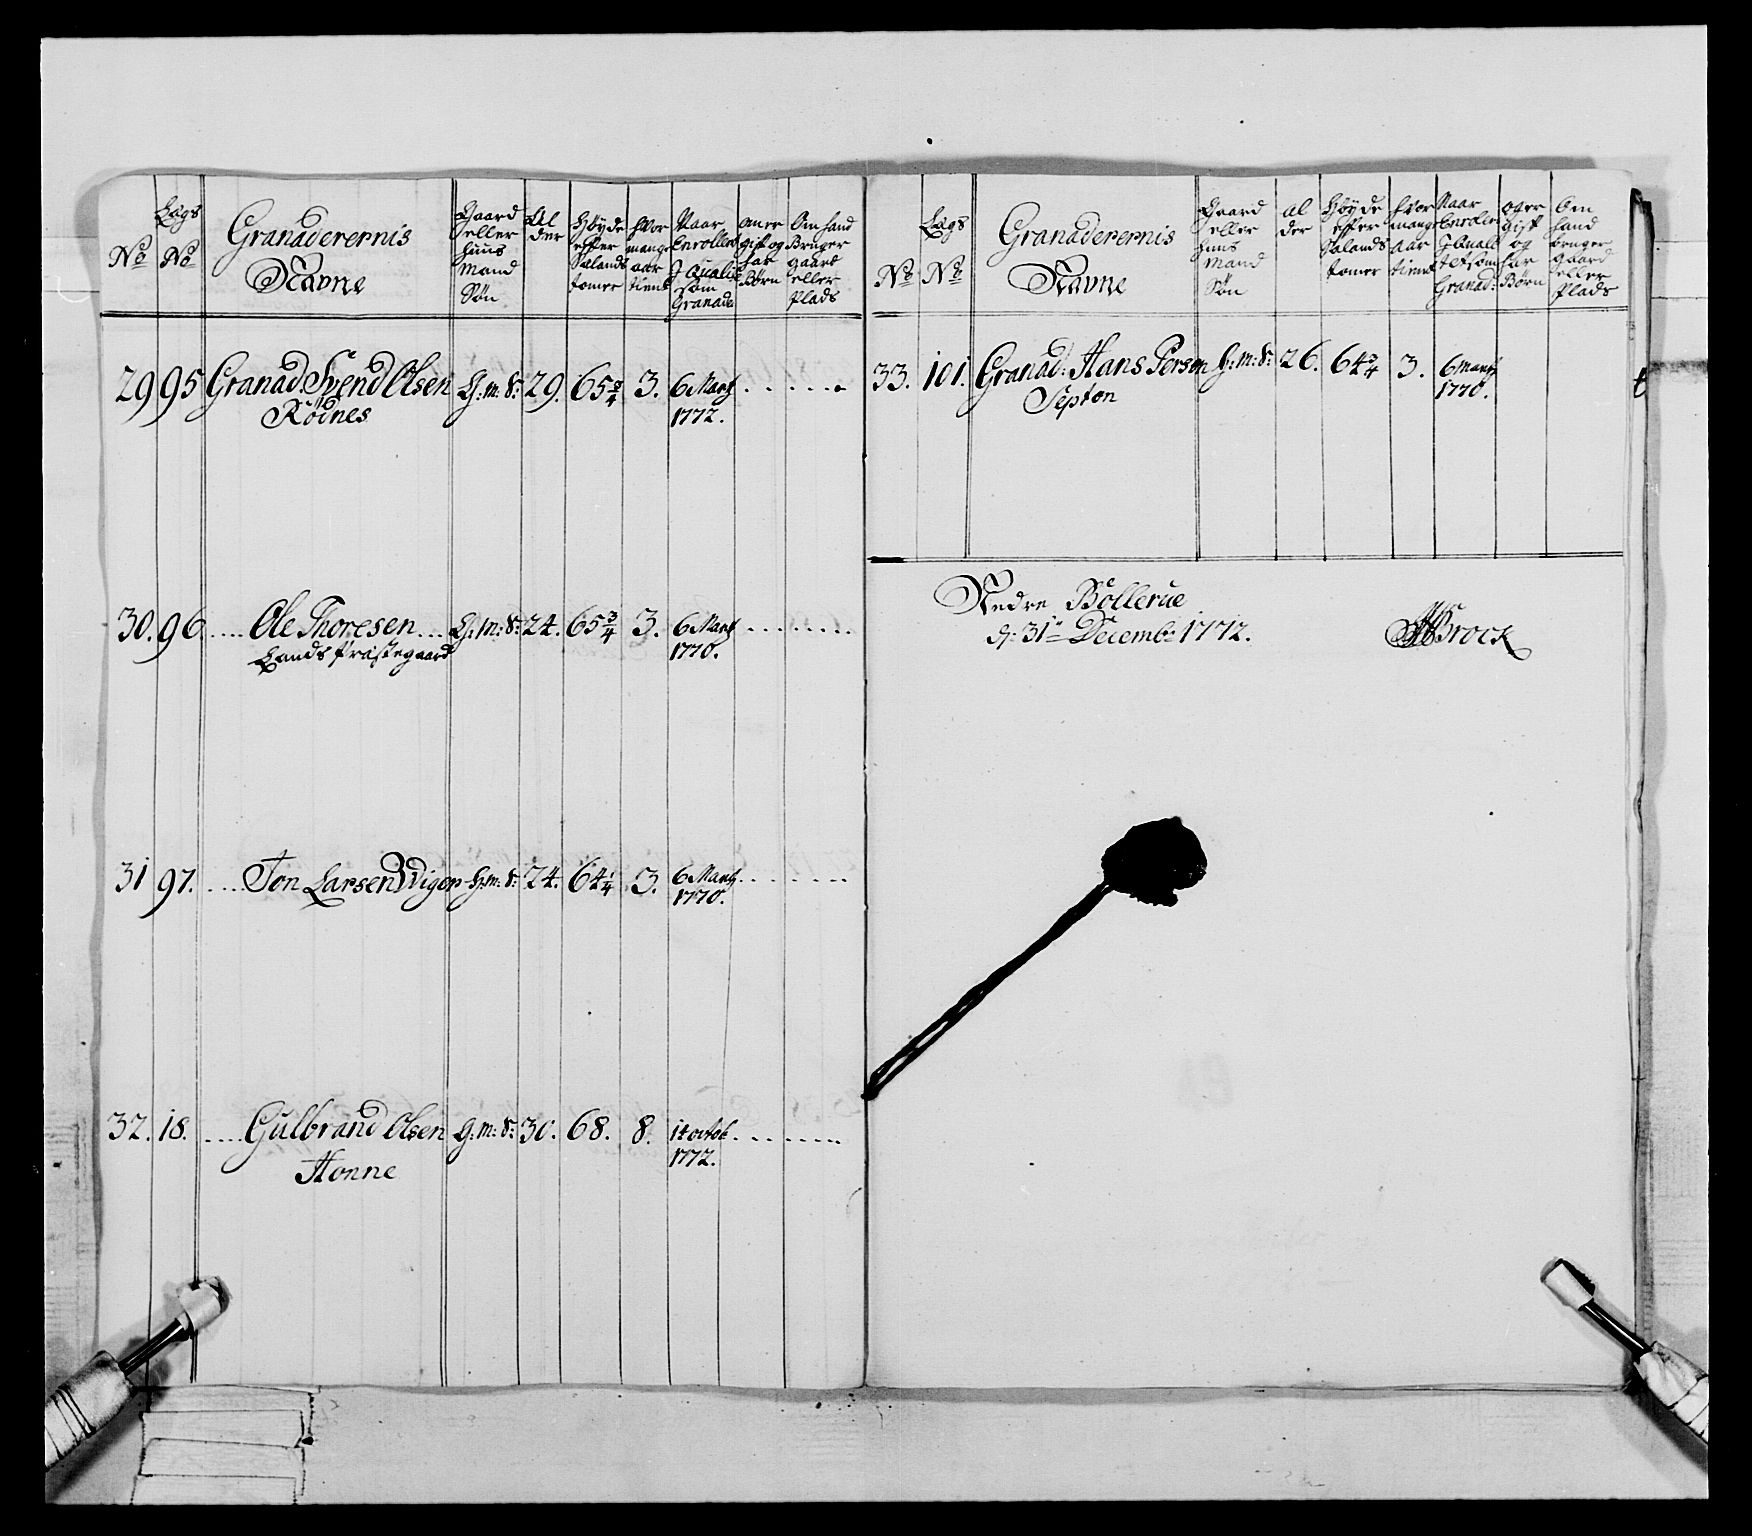 No Lægs No Granaderernis Navne Gaard eller Huus Mand Søn Alder Høyde efter Sælands tomer Hvor mange aar tient Naar Enrollert J Qualit som Granader om er gift og har Børn Om hand Bruger gaard eller Plads
29 95 Granad Svend Olsen G: m: S: 29. 65 3/4 3. 6 Martj
Rødnes 1772.
30. 96 Ole Thoresen G: m: S: 24. 65 3/4 3. 6 Martj
Lands Præstegaard 1770.
31 97. Jon Larsen Wigen H: m: S: 24. 64 1/4 3. 6 Martj
1770.
32. 18. Gulbrand Olsen G: m: S: 30. 68. 8. 14 octob
Honne 1772.
No Lægs No Granaderernis Navne Gaard eller huus Mand Søn alder Høyde efter Sælands tomer hvor mange Aar tient Naar Enrollert J Qualitet som Granad: og er gift og har Børn Om hand bruger gaard eller Plads
33. 101. Granad: Hans Person G: m: S: 26. 64 3/4 3. 6 martj
Septon 1770.
Nedre Böllerue
d: 31te Decembr 1772.
Brock